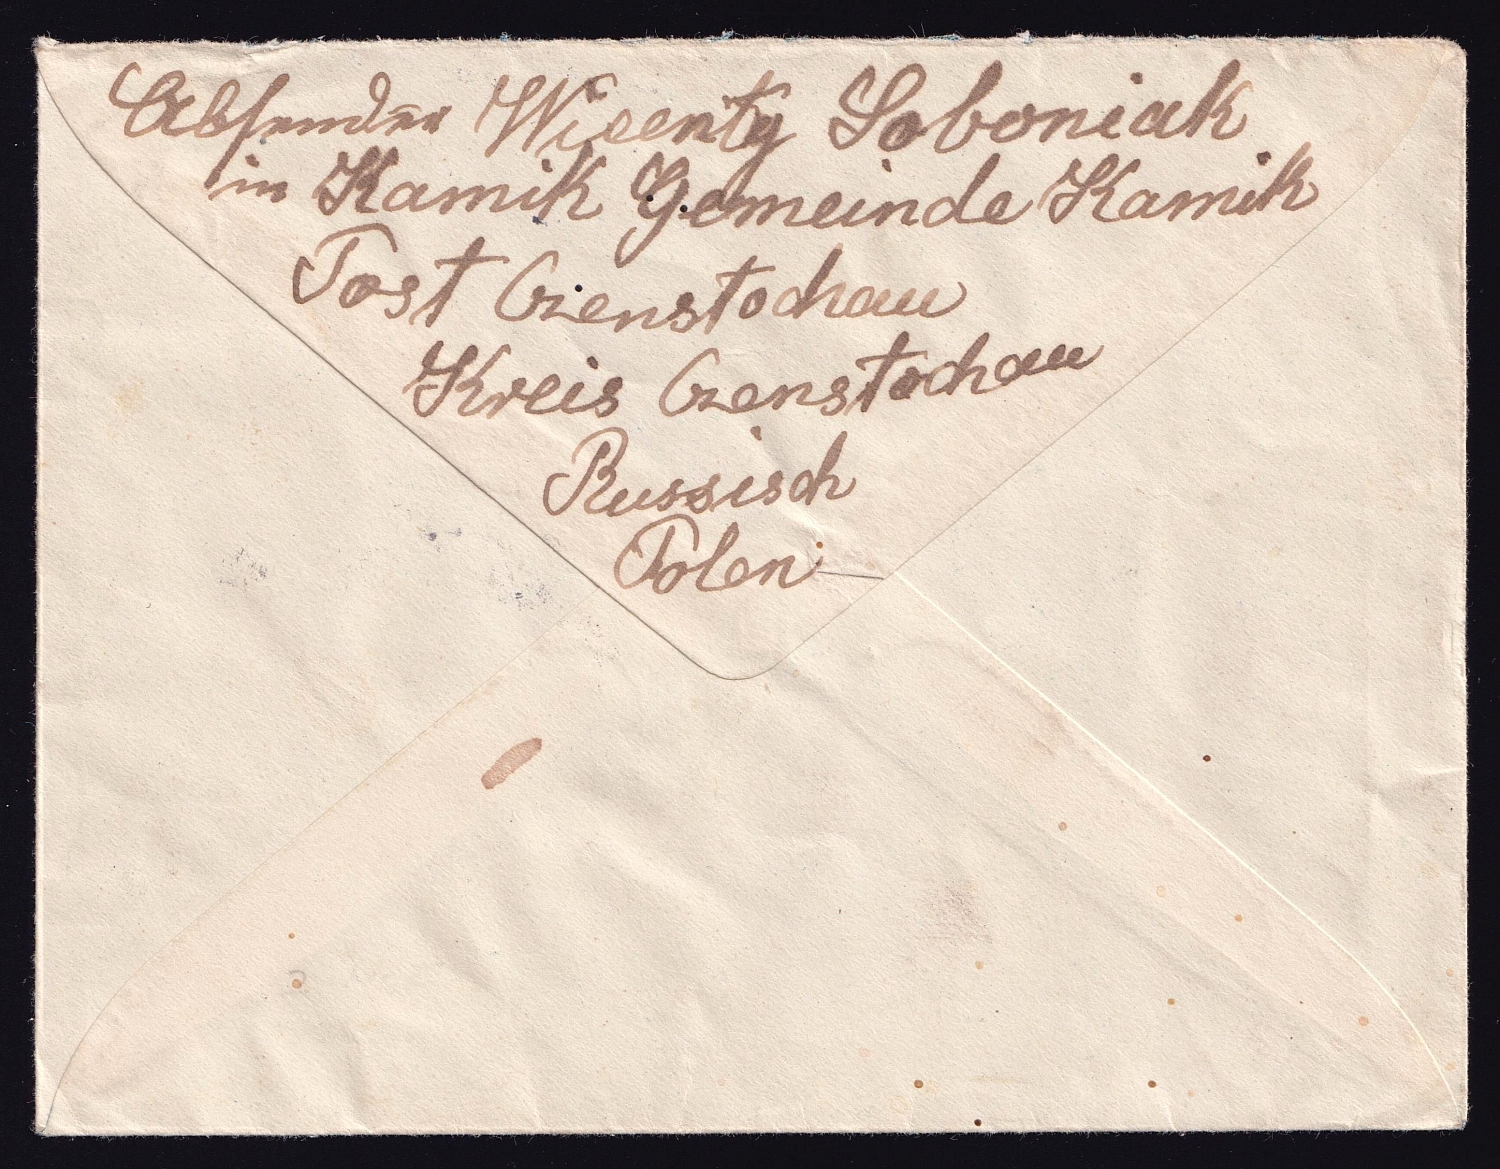 Absender Wicenty Soboniak
in Kamik Gemeinde Kamik
Post Czenstochau
Kreis Czenstochau
Russisch
Polen